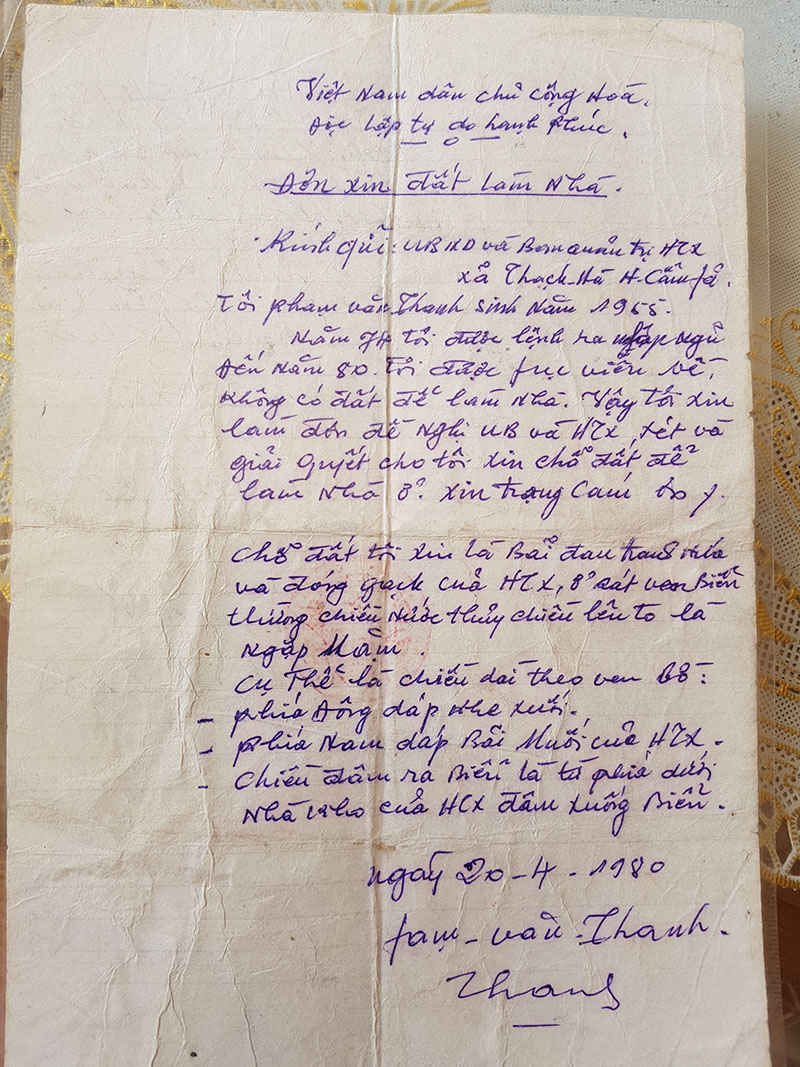 Việt Nam dân chủ cộng Hoà.
Độc Lập tự do hạnh Phúc.
Đơn xin đất làm Nhà.
Kính gửi: UBND và Ban quản trị HTX
xã Thạch-Hà H-Cẩm-fả.
Tôi phạm văn Thanh sinh năm 1955.
Năm 74 tôi được lệnh ra nhập Ngũ
Đến Năm 80. tôi được fục viên về,
không có đất để làm Nhà. Vậy tôi xin
làm đơn đề Nghị UB và HTX, xét và
giải quyết cho tôi xin chỗ đất để
làm Nhà ở. xin trạng Cám ơn
chỗ đất tôi xin là Bãi
và đóng gạch của HTX, ở sát ven Biển
thường chiều Nước thủy chiều lên to là
Ngập Mặm.
Cụ Thể là chiều dài theo ven bờ:
- phía Đông dáp khe xuối.
- phía Nam dáp Bãi Muối của HTX.
- chiều đâm ra Biển là từ phía dưới
Nhà kho của HTX đâm xuống Biển.
ngày 20-4-1980
fạm-văn-Thanh.
Thanh